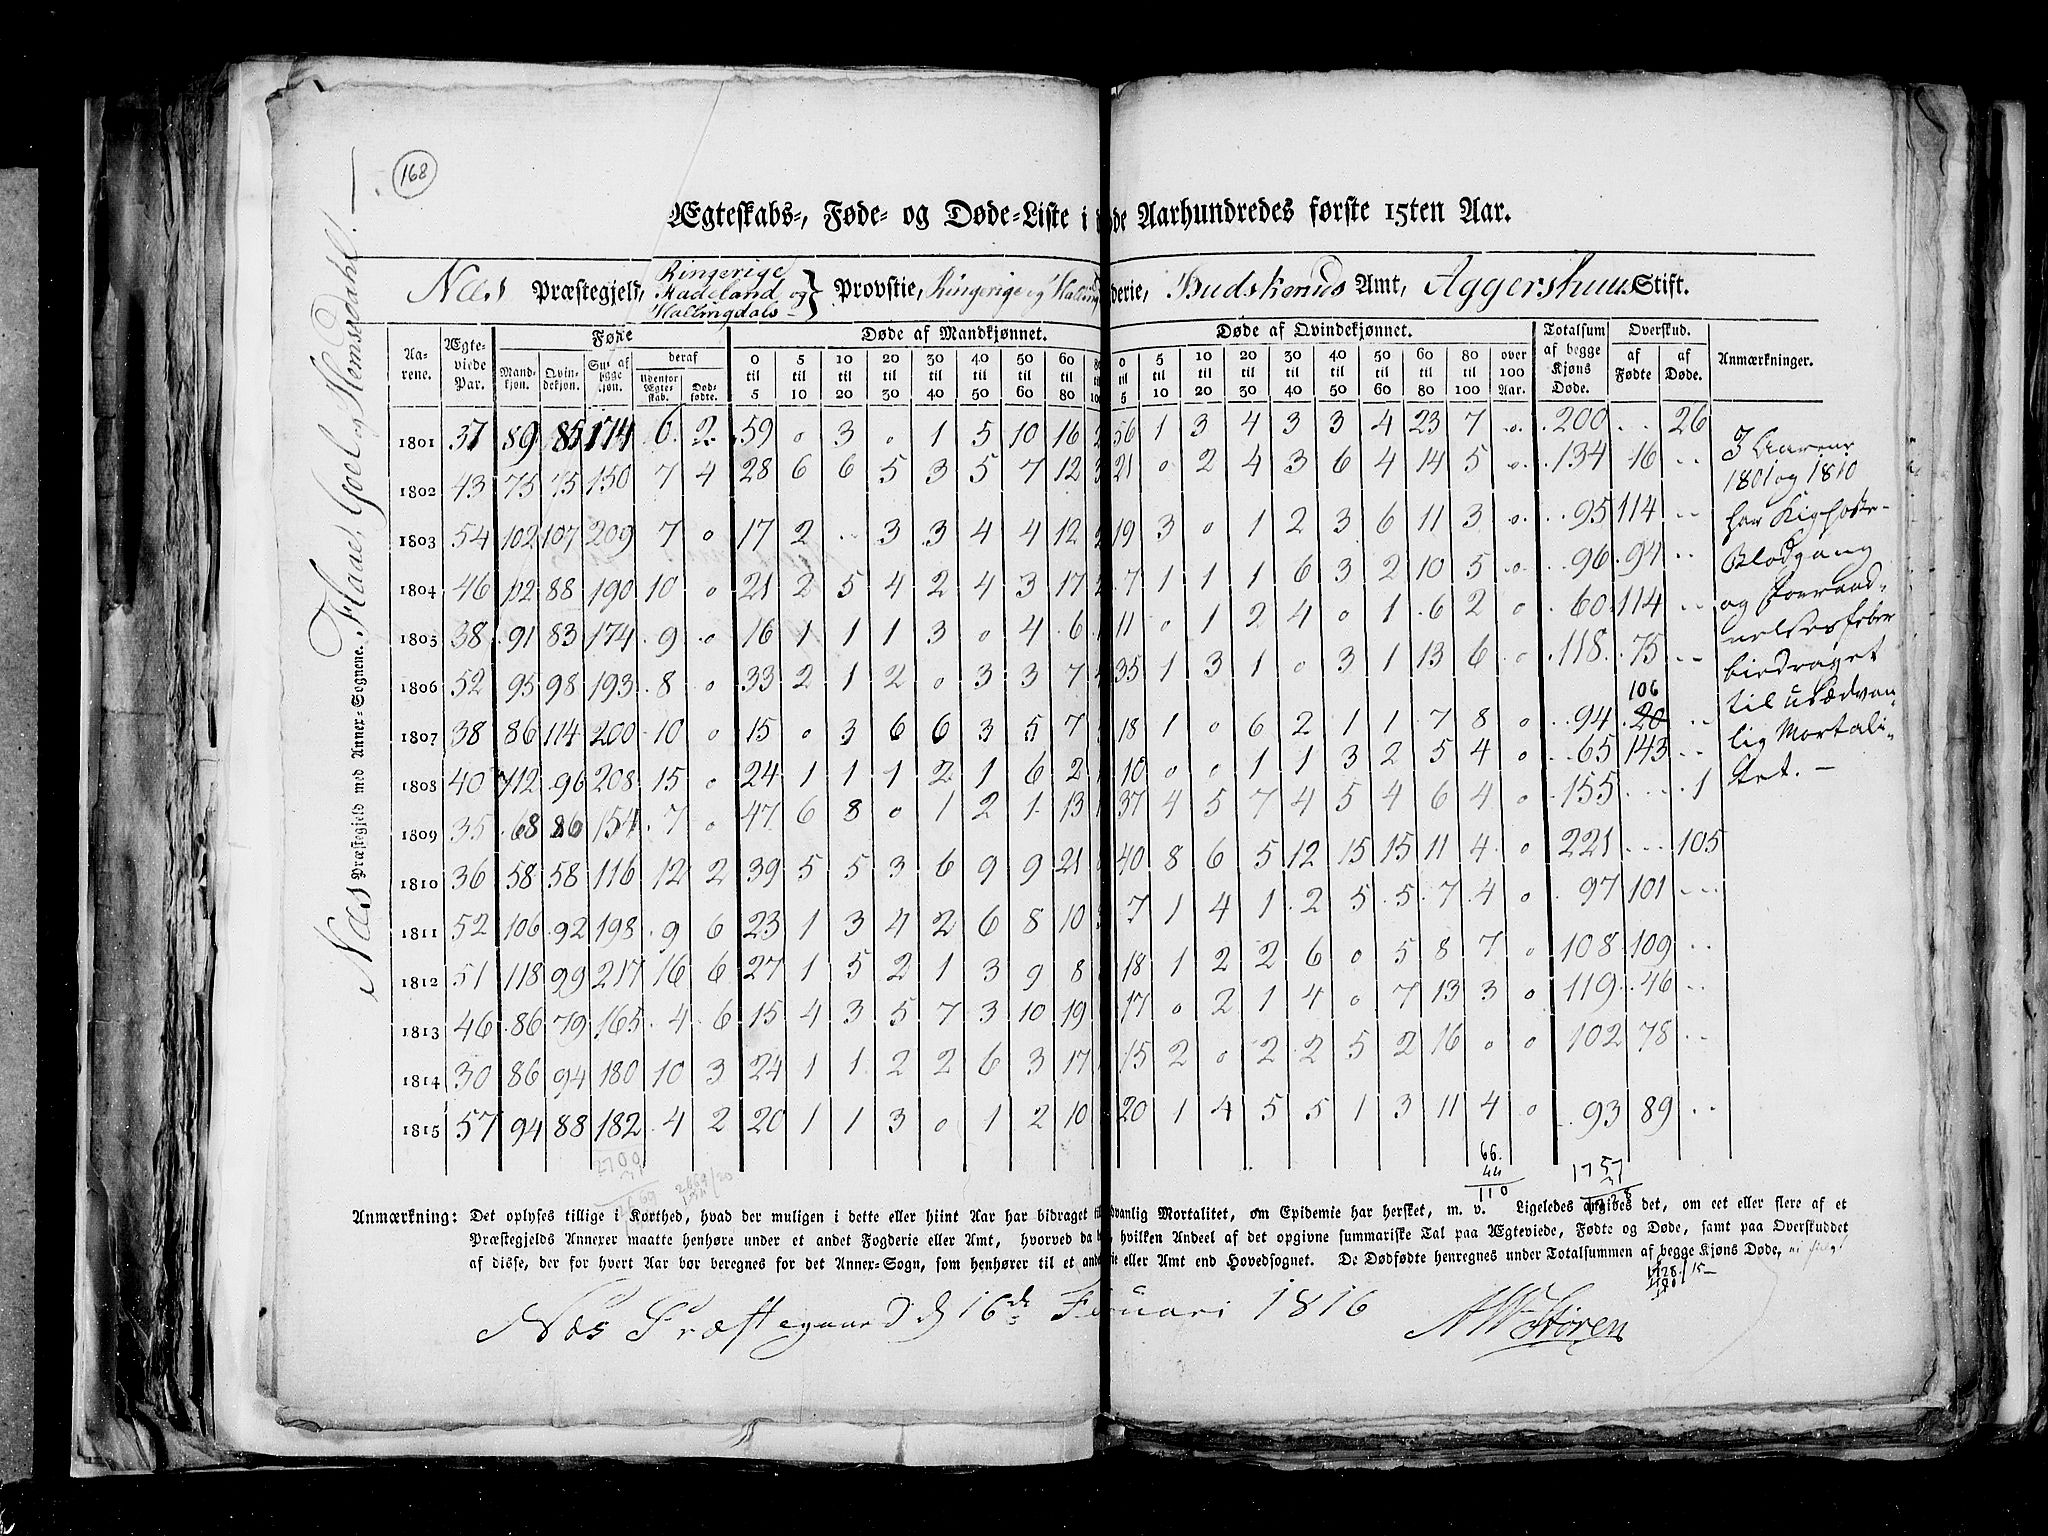 168
Ægteskabs-, Føde- og Døde-Liste i Aarhundredes første 15ten Aar.
Næs Præstegjeld, Ringerige Hadeland og Hallingdals Provstie, Ringerige og Halling derie, Budskeruds Amt, Aggershuus Stift.
Næs Præstegjeld med Annex-Sognene. Flaae, Goel og Hemsedahl.
Aarene. Ægteviede Par. Føde Døde af Mandkjønnet. Døde af Qvindekjønnet. Totalsum af begge Kjøns Døde. Overskud. Anmærkninger.
Mandkjøn. Qvindekjøn. Sum af begge Kjøn. deraf Udenfor Ægteskab. Dødfødte. 0 til 5 5 til 10 10 til 20 20 til 30 30 til 40 40 til 50 50 til 60 60 til 80 0 til 5 5 til 10 10 til 20 20 til 30 30 til 40 40 til 50 50 til 60 60 til 80 80 til 100 over 100 Aar. af Fødte af Døde.
1801 37 89 85 174 6. 2. 59 0 3 0 1 5 10 16 56 1 3 4 3 3 4 23 7 0 200 .. 26
1802 43 75 75 150 7 4 28 6 6 5 3 5 7 12 21 0 2 4 3 6 4 14 5 0 134 16 ..
1803 54 102 107 209 7 0 17 2 .. 3 3 4 4 12 19 3 0 1 2 3 6 11 3 0 95 114 ..
1804 46 102 88 190 10 0 21 2 5 4 2 4 3 17 7 1 1 1 6 3 2 10 5 0 96 94 ..
1805 38 91 83 174 9 0 16 1 1 1 3 0 4 6 11 0 1 2 4 0 1 6 2 0 60 114 ..
1806 52 95 98 193 8 0 33 2 1 2 0 3 3 7 35 1 3 1 0 3 1 13 6 0 118 75 ..
106
1807 38 86 114 200 10 0 15 0 3 6 6 3 5 7 18 1 0 6 2 1 1 7 8 0 94 20 ..
1808 40 112 96 208 15 0 24 1 1 1 2 1 6 2 10 0 0 1 1 3 2 5 4 0 65 143 ..
1809 35 68 86 154 7 0 47 6 8 0 1 2 1 13 37 4 5 7 4 5 4 6 4 0 155 .. 1
1810 36 58 58 116 12 2 39 5 5 3 6 9 9 21 40 8 6 5 12 15 15 11 4 0 221 ... 105
1811 52 106 92 198 9 6 23 1 3 4 2 6 8 10 7 1 4 1 2 5 5 7 4 0 97 101 ...
1812 51 118 99 217 16 6 27 1 5 2 1 3 9 8 18 1 2 2 6 0 5 8 7 0 108 109 ..
1813 46 86 79 165 4 6 15 4 3 5 7 3 10 19 17 0 2 1 4 0 7 13 3 0 119 46 ..
1814 30 86 94 180 10 3 24 1 1 2 2 6 3 17 15 2 0 2 2 5 2 16 0 0 102 78 ..
1815 57 94 88 182 4 2 20 1 1 3 0 1 2 10 20 1 4 5 5 1 3 11 4 0 93 89 ..
I Aarene
1801 og 1810
har Kighoste-
Blodgang
og Forraad-
nelsesfeber
bidraget
til usædvan-
lig Mortali-
tet. —
2700
66.
44
110
1757
Anmærkning: Det oplyses tillige i Korthed, hvad der muligen i dette eller hiint Aar har bidraget til dvanlig Mortalitet, om Epidemie har hersket, m. v. Ligeledes angives det, om eet eller flere af et
Præstegjelds Annexer maatte henhøre under et andet Fogderie eller Amt, hvorved da hvilken Andeel af det opgivne summariske Tal paa Ægteviede, Fødte og Døde, samt paa Overskuddet
af disse, der for hvert Aar bør beregnes for det Annex-Sogn, som henhører til et eller Amt end Hovedsognet. De Dødfødte henregnes under Totalsummen af begge Kjøns Døde,
Næs Præstegaard d 16de Februari 1816
AW Støren